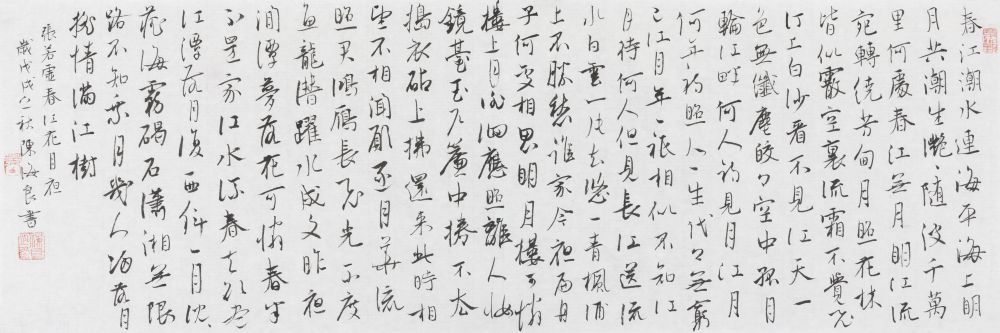 春江潮水連海平海上明
月共潮生灔隨波千萬
里何處春江無月明江流
宛轉繞芳甸月照花林
皆似霰空裏流霜不覺飛
汀上白沙看不見江天一
色無纖塵皎々空中孤月
輪江畔何人初見月江月
何年初照人々生代々無窮
已江月年々祇相似不知江
月待何人但見長江送流
水白雲一片去悠々青楓浦
上不勝愁誰家今夜扁舟
子何處相思明月樓可憐
樓上月徘徊應照離人妝
鏡臺玉戶簾中捲不去
搗衣砧上拂還來此時相
望不相聞願逐月華流
照君鴻雁長飛光不度
魚龍潛躍水成文昨夜
閒潭夢落花可憐春半
不還家江水流春去欲盡
江潭落月復西斜々月沈々
藏海霧碣石瀟湘無限
路不知乘月幾人歸落月
搖情滿江樹
張若虛春江花月夜
歲戊戌之秋陳海良書